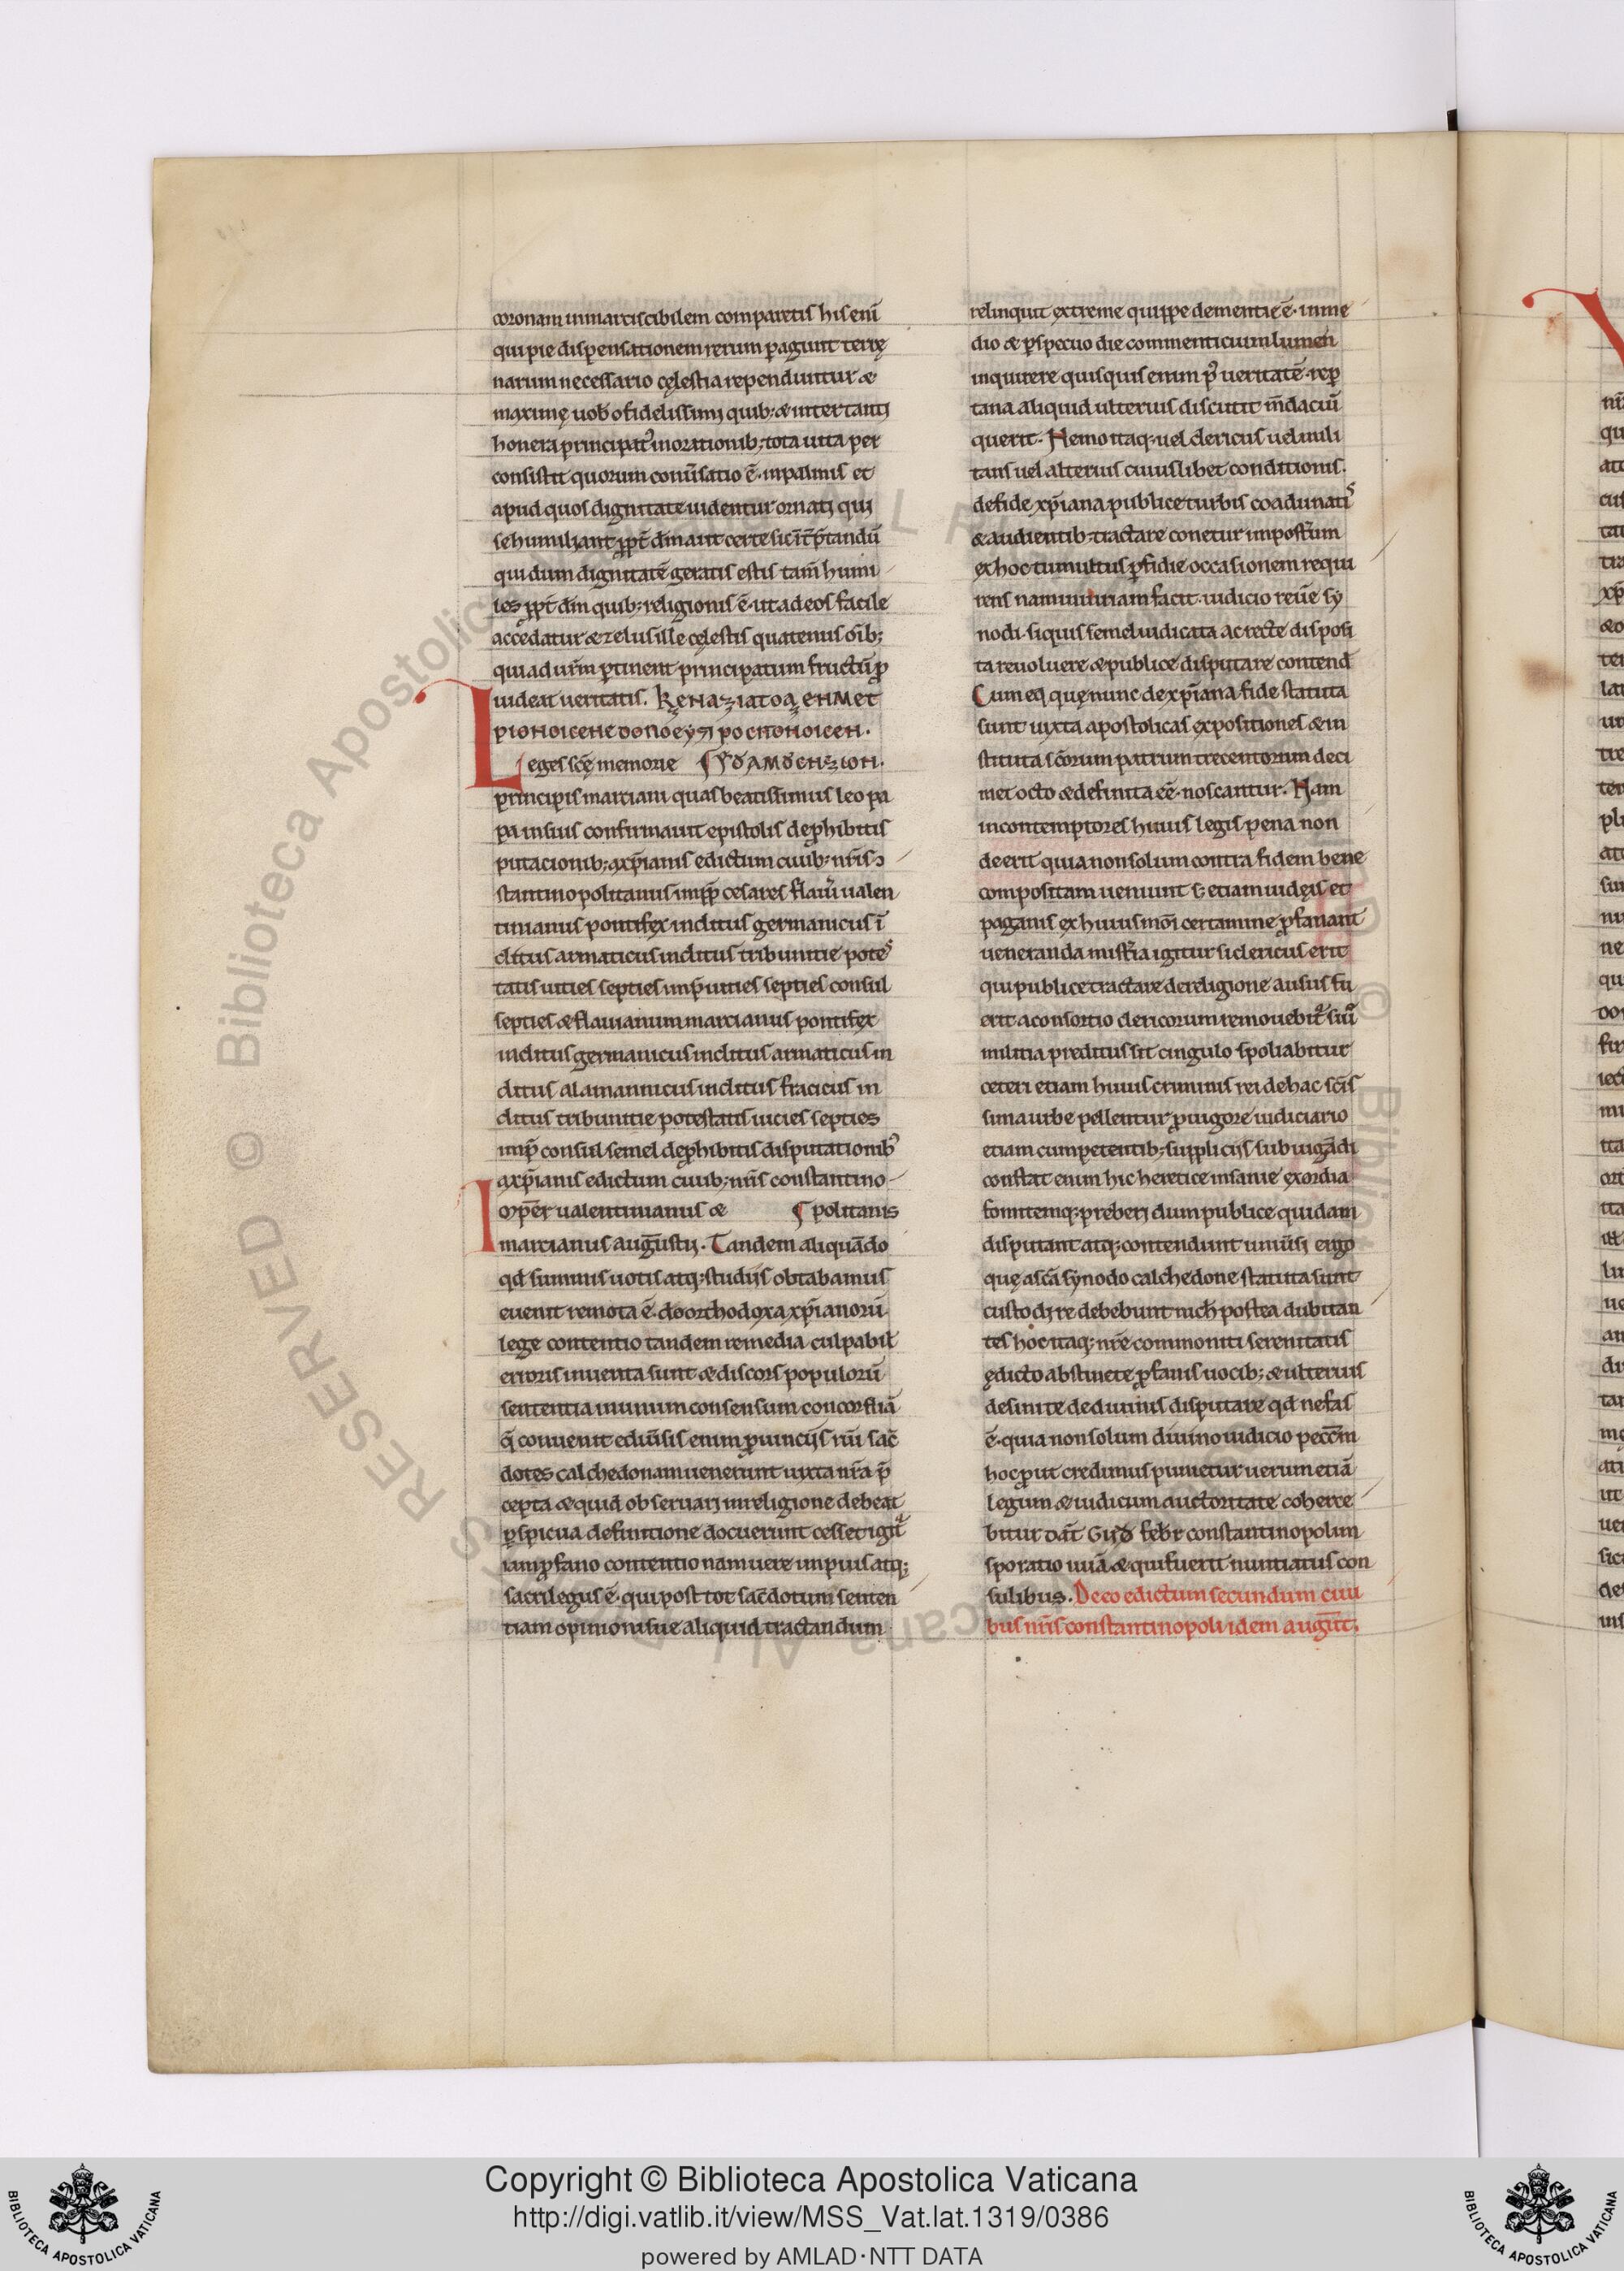 coronam inmarciscibilem comparetis his enī
qui pie dispensationem rerum ꝑagunt terrę
narum necessario cęlestia rependuntur &
maximę uob̄ o fidelissimi quib; & inter tanti
honera principatꝰ in orationib; tota uita per
consistit quorum conūsatio ē· in palmis et
apud quos dignitate uidentur ornati qui
se humiliant ꝓpt̄ dm̄ aut certe sic īt̄p̄tandū
qui dum dignitatē geratis estis tam̄ humi
les ꝓpt̄ dm̄ quib; religionis ē· ut ad eos facile
accedatur & zelus ille cęlestis quatenus oīb;
qui ad ur̄m ꝑtinent principatum fructū ꝓ
uideat ueritatis.
Leges scę memorie
principis marciani quas beatissimus leo pa
pa in suis confirmauit epistolis de ꝓhibitis
putacionib; a xp̄ianis edictum cuuib; nr̄is ɔ
stantinopolitanus imꝑ̄ cesares flaui ualen
tinianus pontifex inclitus germanicus ī
clitus armaticus inclitus tribunitie potes
tatis uities septies imp̄ uities septies consul
septies & flauianum marcianus pontifex
inclitus germanicus inclitus armaticus in
clitus alamannicus inclitus fracicus in
clitus tribunitie potestatis uicies septies
imp̄ consul semel de ꝓhibitis disputationibꝰ
a xp̄ianis edictum cuuib; nr̄is constantino
Imper̄ ualentinianus & ¶ politanis
marcianus augustij. Tandem aliquādo
qd̄ summis uotis atq; studijs obtabamus
euenit remota ē· de orthodoxa xp̄ianorū
lege contentio tandem remedia culpabil̄
erroris inuenta sunt & discors populorū
sententia in unum consensum concordiā
q̄ conuenit e diūsis enim ꝓuincijs nū sac̄
dotes calchedonam uenerunt iuxta nr̄a p̄
cepta & quid obseruari in religione debeat
ꝑspicua definitione docuerunt cesset igit̄
iam ꝓfano contentio nam uere impius atq;
sacrilegus ē· qui post tot sac̄dotum senten
tiam opinionis sue aliquid tractandum
relinquit extreme quippe dementie ē· in me
dio & ꝑspecuo die commenticium lumen
inquirere quisquis enim pꝰ ueritatē reꝑ
tana aliquid ulterius discutit m̄daciū
querit. Nemo itaq; uel clericus uel mili
tans uel alterius cuiuslibet conditionis.
de fide xp̄iana publice turbis coadunatis
& audientib; tractare conetur in posterum
ex hoc tumultus ꝑfidie occasionem requi
rens nam iniuriam facit iudicio reuē sy
nodi. siquis semel iudicata ac recte disposi
ta reuoluere & publice disputare contend̄
Cum eq̨ quę nunc de xp̄iana fide statuta
sunt iuxta apostolicas expositiones & in
stituta scōrum patrum trecentorum deci
met octo & definita eē· noscantur. Nam
in contemptores huius legis pena non
deerit quia non solum contra fidem bene
compositam ueniunt s; etiam iudęis et
paganis ex huiusmōi certamine ꝓfanant
ueneranda mist̄ia igitur si clericus erit
qui publice tractare de religione ausus fu
erit a consortio clericorum remouebit̄ siū
militia preditus sit cingulo spoliabitur
ceteri etiam huius criminis rei de hac scīs
sima urbe pellentur ꝓ uigore iudiciario
etiam cumpetentib; supplicijs subiugādi
constat enim hic heretice insanie exordia
fomitemq; preberi dum publice quidam
disputant atq; contendunt uniūsi ergo
quę a scā synodo calchedone statuta sunt
custodire debebunt nich̄ postea dubitan
tes hoc itaq; nr̄e commoniti serenitatis
ędicto abstinete ꝓfanis uocib; & ulterius
desinite de diuinis disputare qd̄ nefas
ē· quia non solum diuino iudicio pecc̄m
hoc ꝓut credimus punietur uerum etiā
legum & iudicum auctoritate coherce
bitur dat̄ febr̄ constantinopolim
sporatio uiiā & qui fuerit nuntiatus con
sulibus. De eo edictum secundum cuu
bus nr̄is constantinopoli idem augūt.
Copyright © Biblioteca Apostolica Vaticana
http://digi.vatlib.it/view/MSS_Vat.lat.1319/0386
powered by AMLAD·NTT DATA